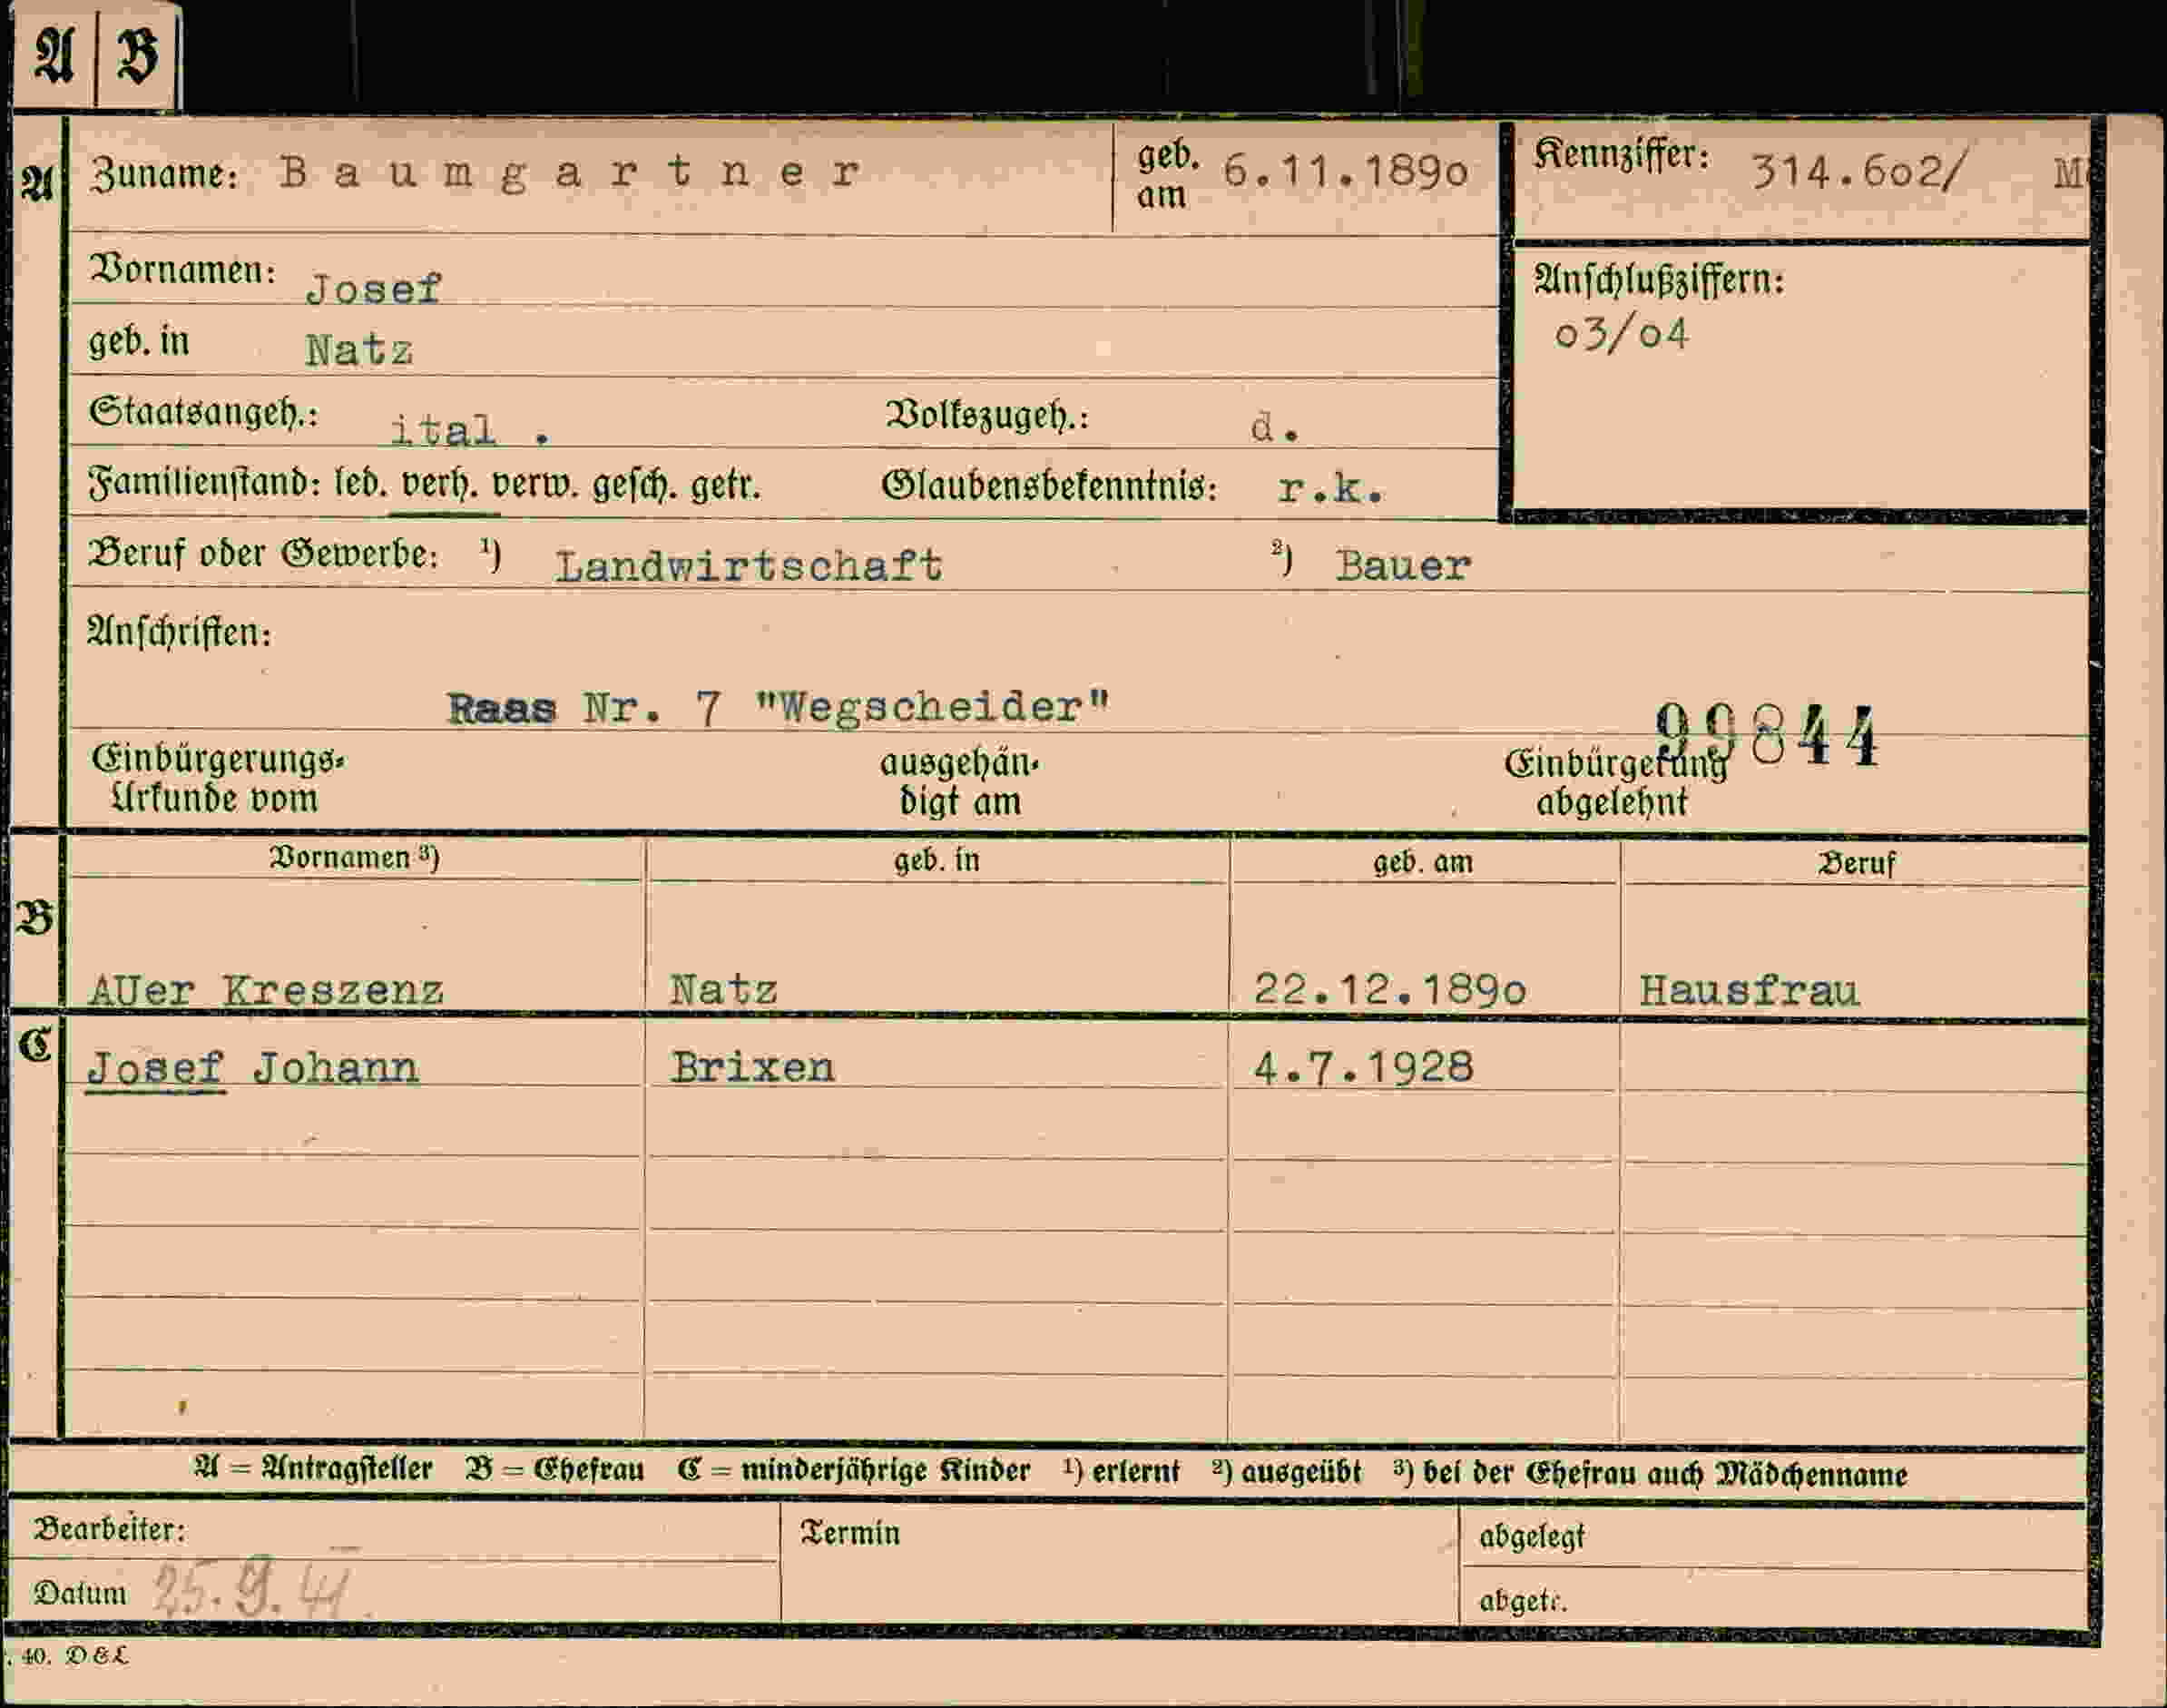 A B
A Zuname: Baumgartner geb. am 6.11.189o Kennziffer: 314.6o2/ M
Vornamen: Josef
Anschlußziffern:
geb. in Natz
o3/o4
Staatsangeh.: ital . Volkszugeh.: d.
Familienstand: led. verh. verw. gesch. getr. Glaubensbekenntnis: r.k.
Beruf oder Gewerbe: 1) Landwirtschaft 2) Bauer
Anschriften:
Raas Nr. 7 "Wegscheider"
99844
Einbürgerungs- ausgehän- Einbürgerung
Urkunde vom digt am abgelehnt
Vornamen 3) geb. in geb. am Beruf
B
AUer Kreszenz Natz 22.12.189o Hausfrau
C
Josef Johann Brixen 4.7.1928
A = Antragsteller B = Ehefrau C = minderjährige Kinder 1) erlernt 2) ausgeübt 3) bei der Ehefrau auch Mädchenname
Bearbeiter: Termin abgelegt
Datum 25.9.41. abgetr.
. 40. D & L